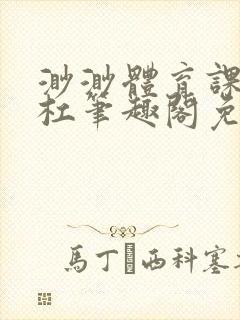 渺渺體育課
杜筆趣閣免
馬丁 西科塞